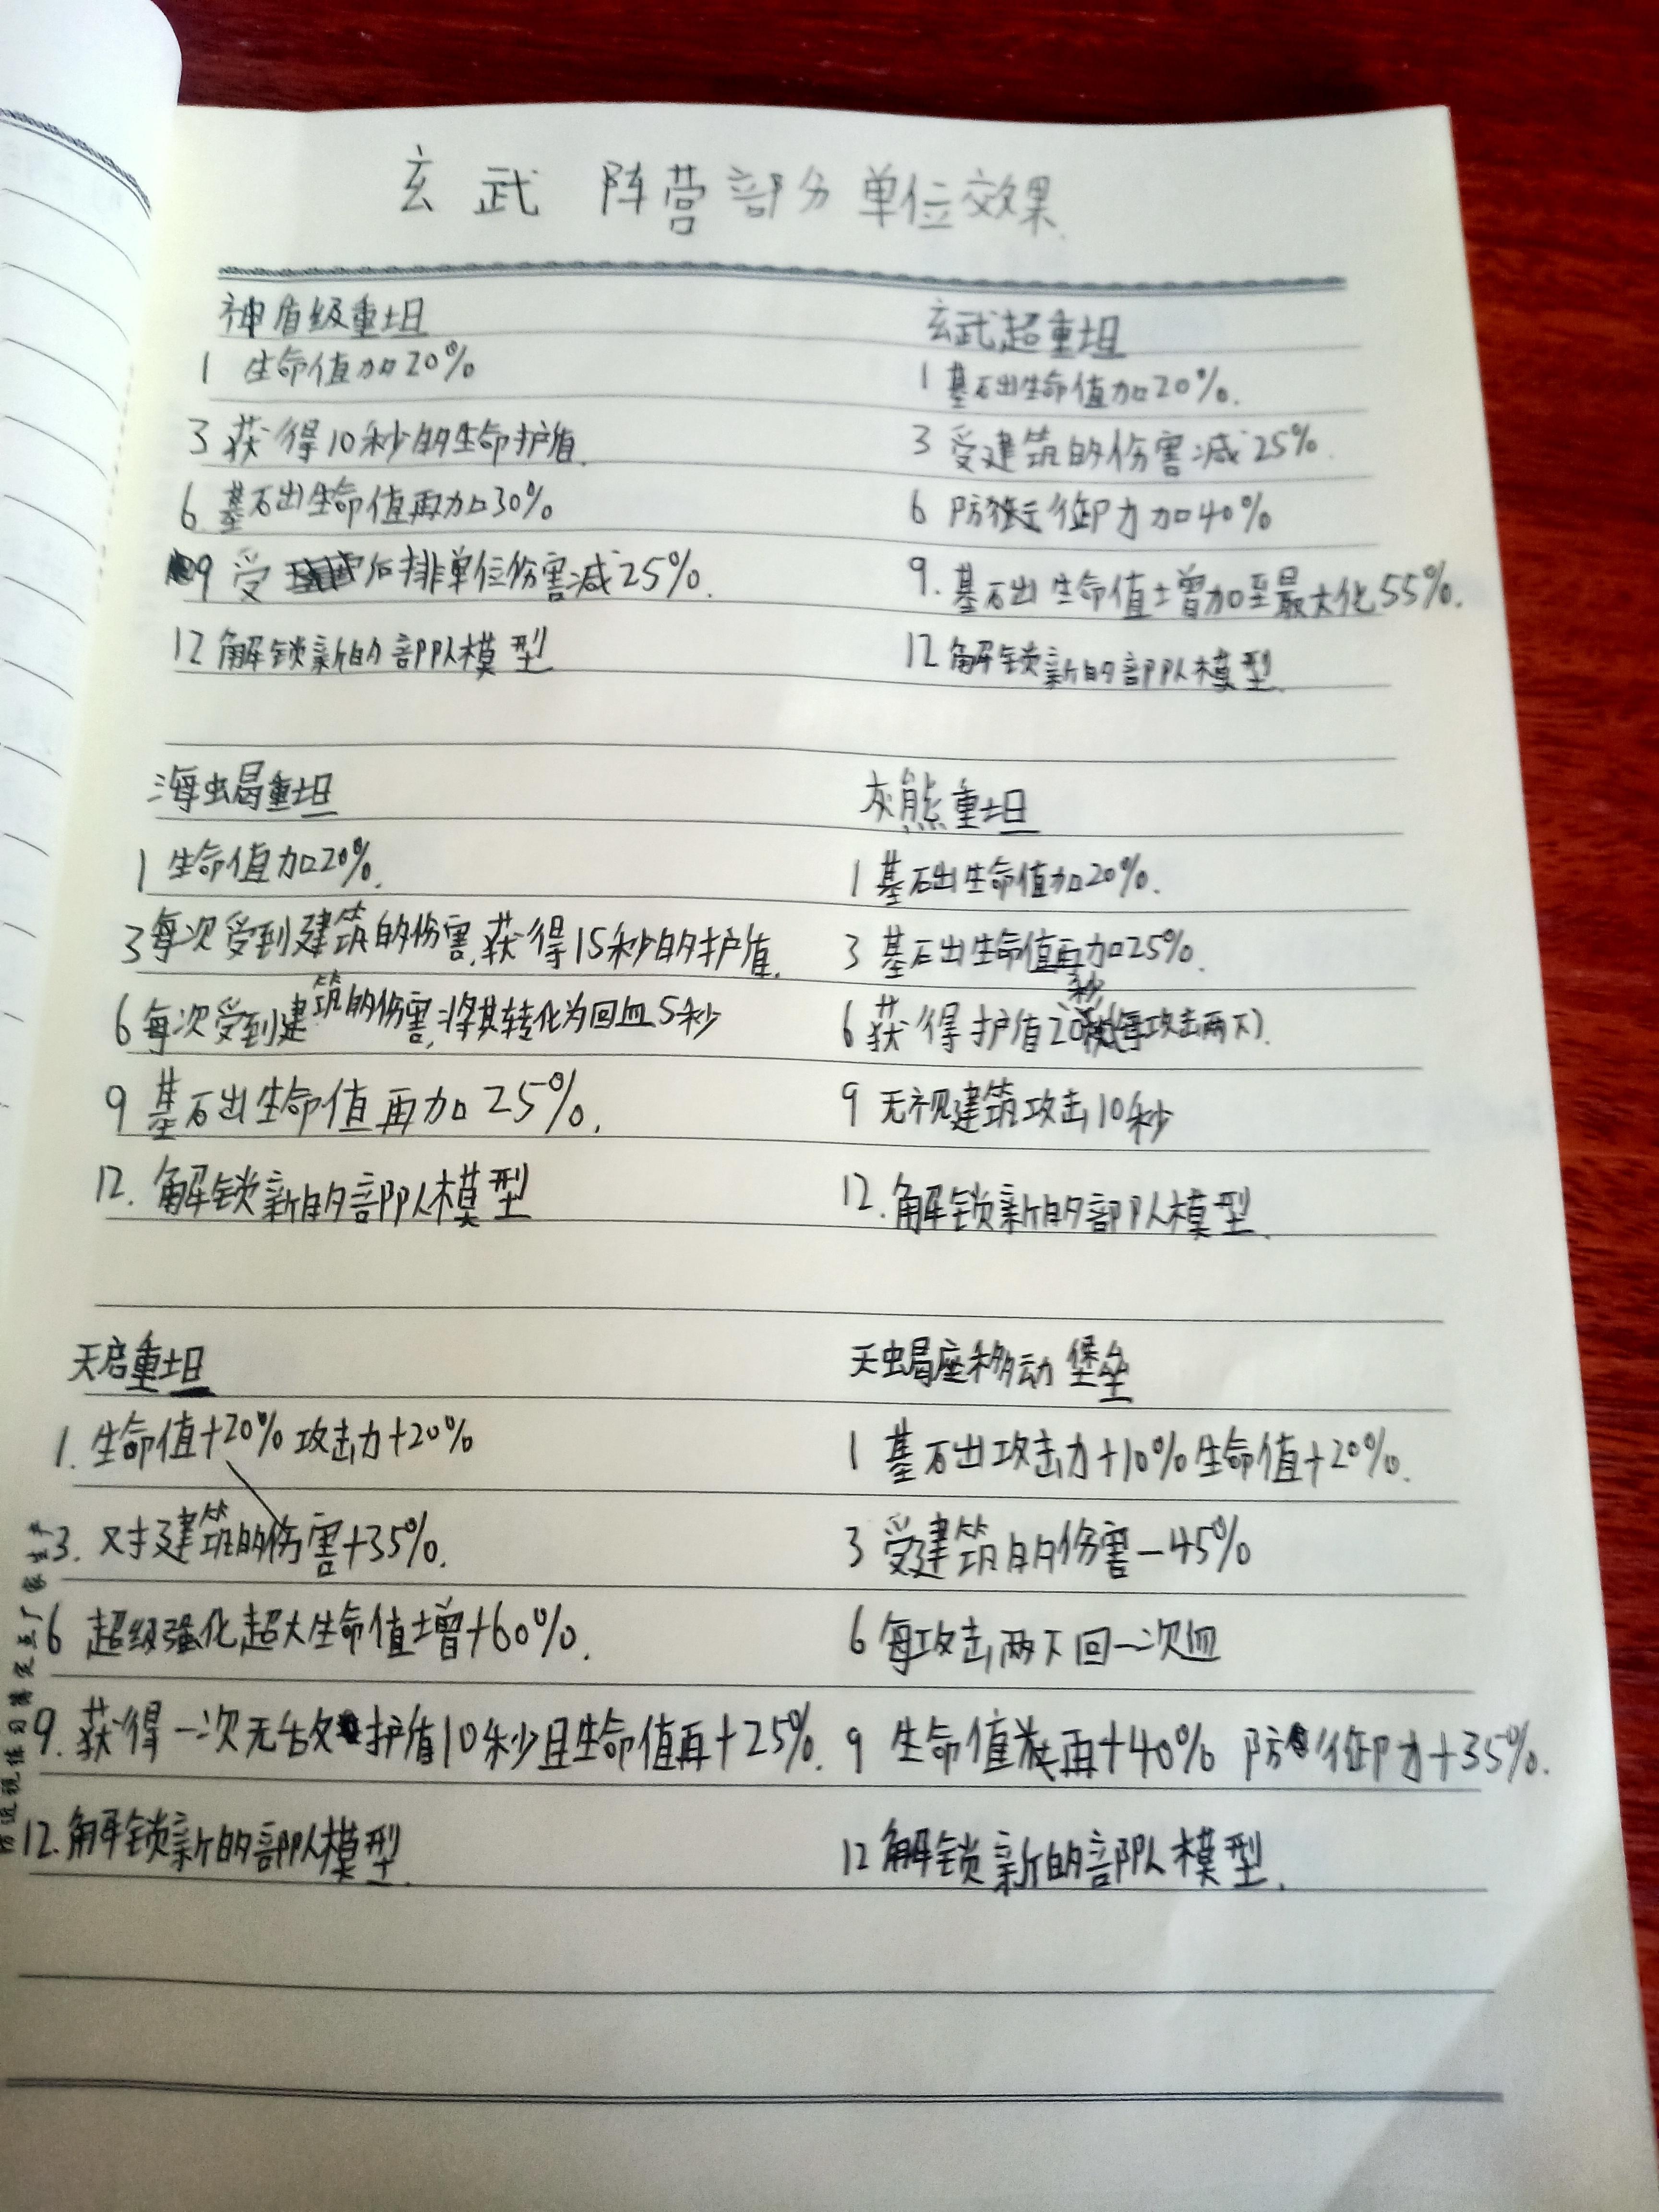 玄武 阵营部分单位效果
神盾级重坦
1 生命值加20%
3 获得10秒的生命护盾.
6 基础生命值再加30%
9 受后排单位伤害减25%.
12 解锁新的部队模型
玄武超重坦
1 基础生命值加20%.
3 受建筑的伤害减25%.
6 防御力加40%
9. 基础生命值增加至最大化55%.
12 解锁新的部队模型.
海蝎重坦
1 生命值加20%.
3 每次受到建筑的伤害,获得15秒的护盾.
6 每次受到建筑的伤害,将其转化为回血5秒
9 基础生命值再加25%.
12. 解锁新的部队模型
灰熊重坦
1 基础生命值加20%.
3 基础生命值再加25%.
6 获得护盾20秒(每攻击两下).
9 无视建筑攻击10秒
12. 解锁新的部队模型.
天启重坦
1. 生命值+20% 攻击力+20%
3. 对建筑的伤害+35%.
6 超级强化超大生命值增+60%.
9. 获得一次无敌护盾10秒且生命值再+25%.
12. 解锁新的部队模型.
天蝎座移动堡垒
1 基础攻击力+10%生命值+20%.
3 受建筑的伤害-45%
6 每攻击两下回一次血
9 生命值再+40% 防御力+35%.
12 解锁新的部队模型.